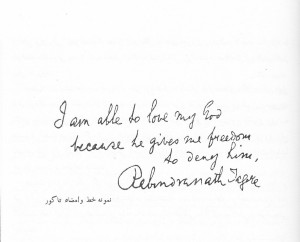 I am able to love my God
because he gives me freedom
to deny him,
Rabindranath Tagore
نمونه خط و امضاء تاگور